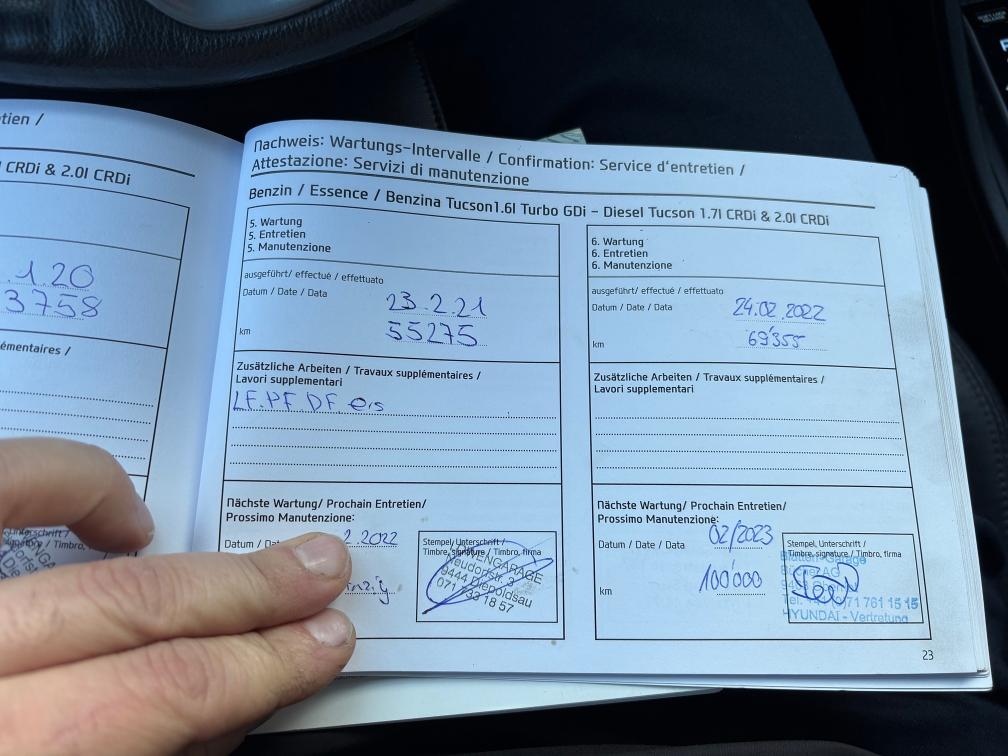 tien /
l CRDi & 2.0l CRDi
1.20
3758
émentaires /
Nachweis: Wartungs-Intervalle / Confirmation: Service d'entretien /
Attestazione: Servizi di manutenzione
Benzin / Essence / Benzina Tucson1.6l Turbo GDi – Diesel Tucson 1.7l CRDi & 2.0l CRDi
5. Wartung
5. Entretien
5. Manutenzione
ausgeführt/ effectué / effettuato
Datum / Date / Data 23.2.21
km 55275
Zusätzliche Arbeiten / Travaux supplémentaires /
Lavori supplementari
LF.PF.DF.
Nächste Wartung/ Prochain Entretien/
Prossimo Manutenzione:
Datum / Da 2.2022
Stempel/ Unterschrift /
Timbre, signature / Timbro, firma
9444 Diepoldsau
071 733 18 57
6. Wartung
6. Entretien
6. Manutenzione
ausgeführt/ effectué / effettuato
Datum / Date / Data 24.02.2022
km 69'355
Zusätzliche Arbeiten / Travaux supplémentaires /
Lavori supplementari
Nächste Wartung/ Prochain Entretien/
Prossimo Manutenzione:
Datum / Date / Data 02/2023
km 100'000
Stempel, Unterschrift /
Timbre, signature / Timbro, firma
Garage
AG
71 761 15 15
HYUNDAI - Vertretung
23